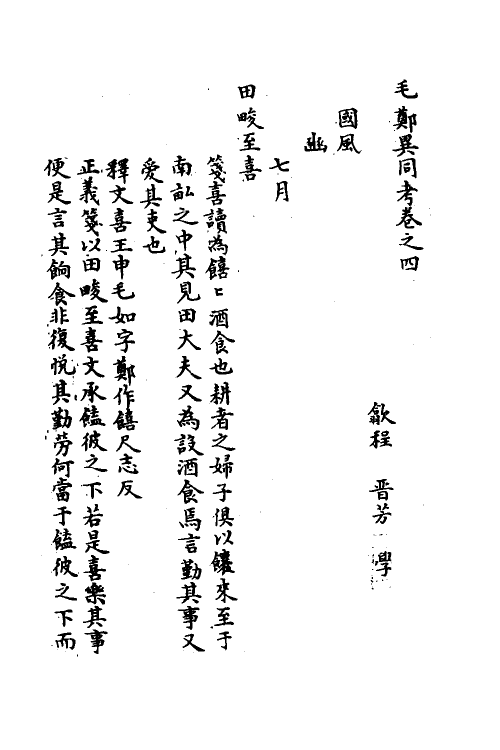 毛鄭異同考卷之四
歙程 晉芳 學
國風
豳
七月
田畯至喜
箋喜讀為饎〻酒食也耕者之婦子俱以饟來至于
南畆之中其見田大夫又為設酒食焉言勤其事又
愛其吏也
釋文喜王申毛如字鄭作饎尺志反
正義箋以田畯至喜文承饁彼之下若是喜樂其事
便是言其餉食非復悅其勤勞何當于饁彼之下而